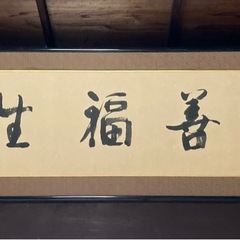 善福生